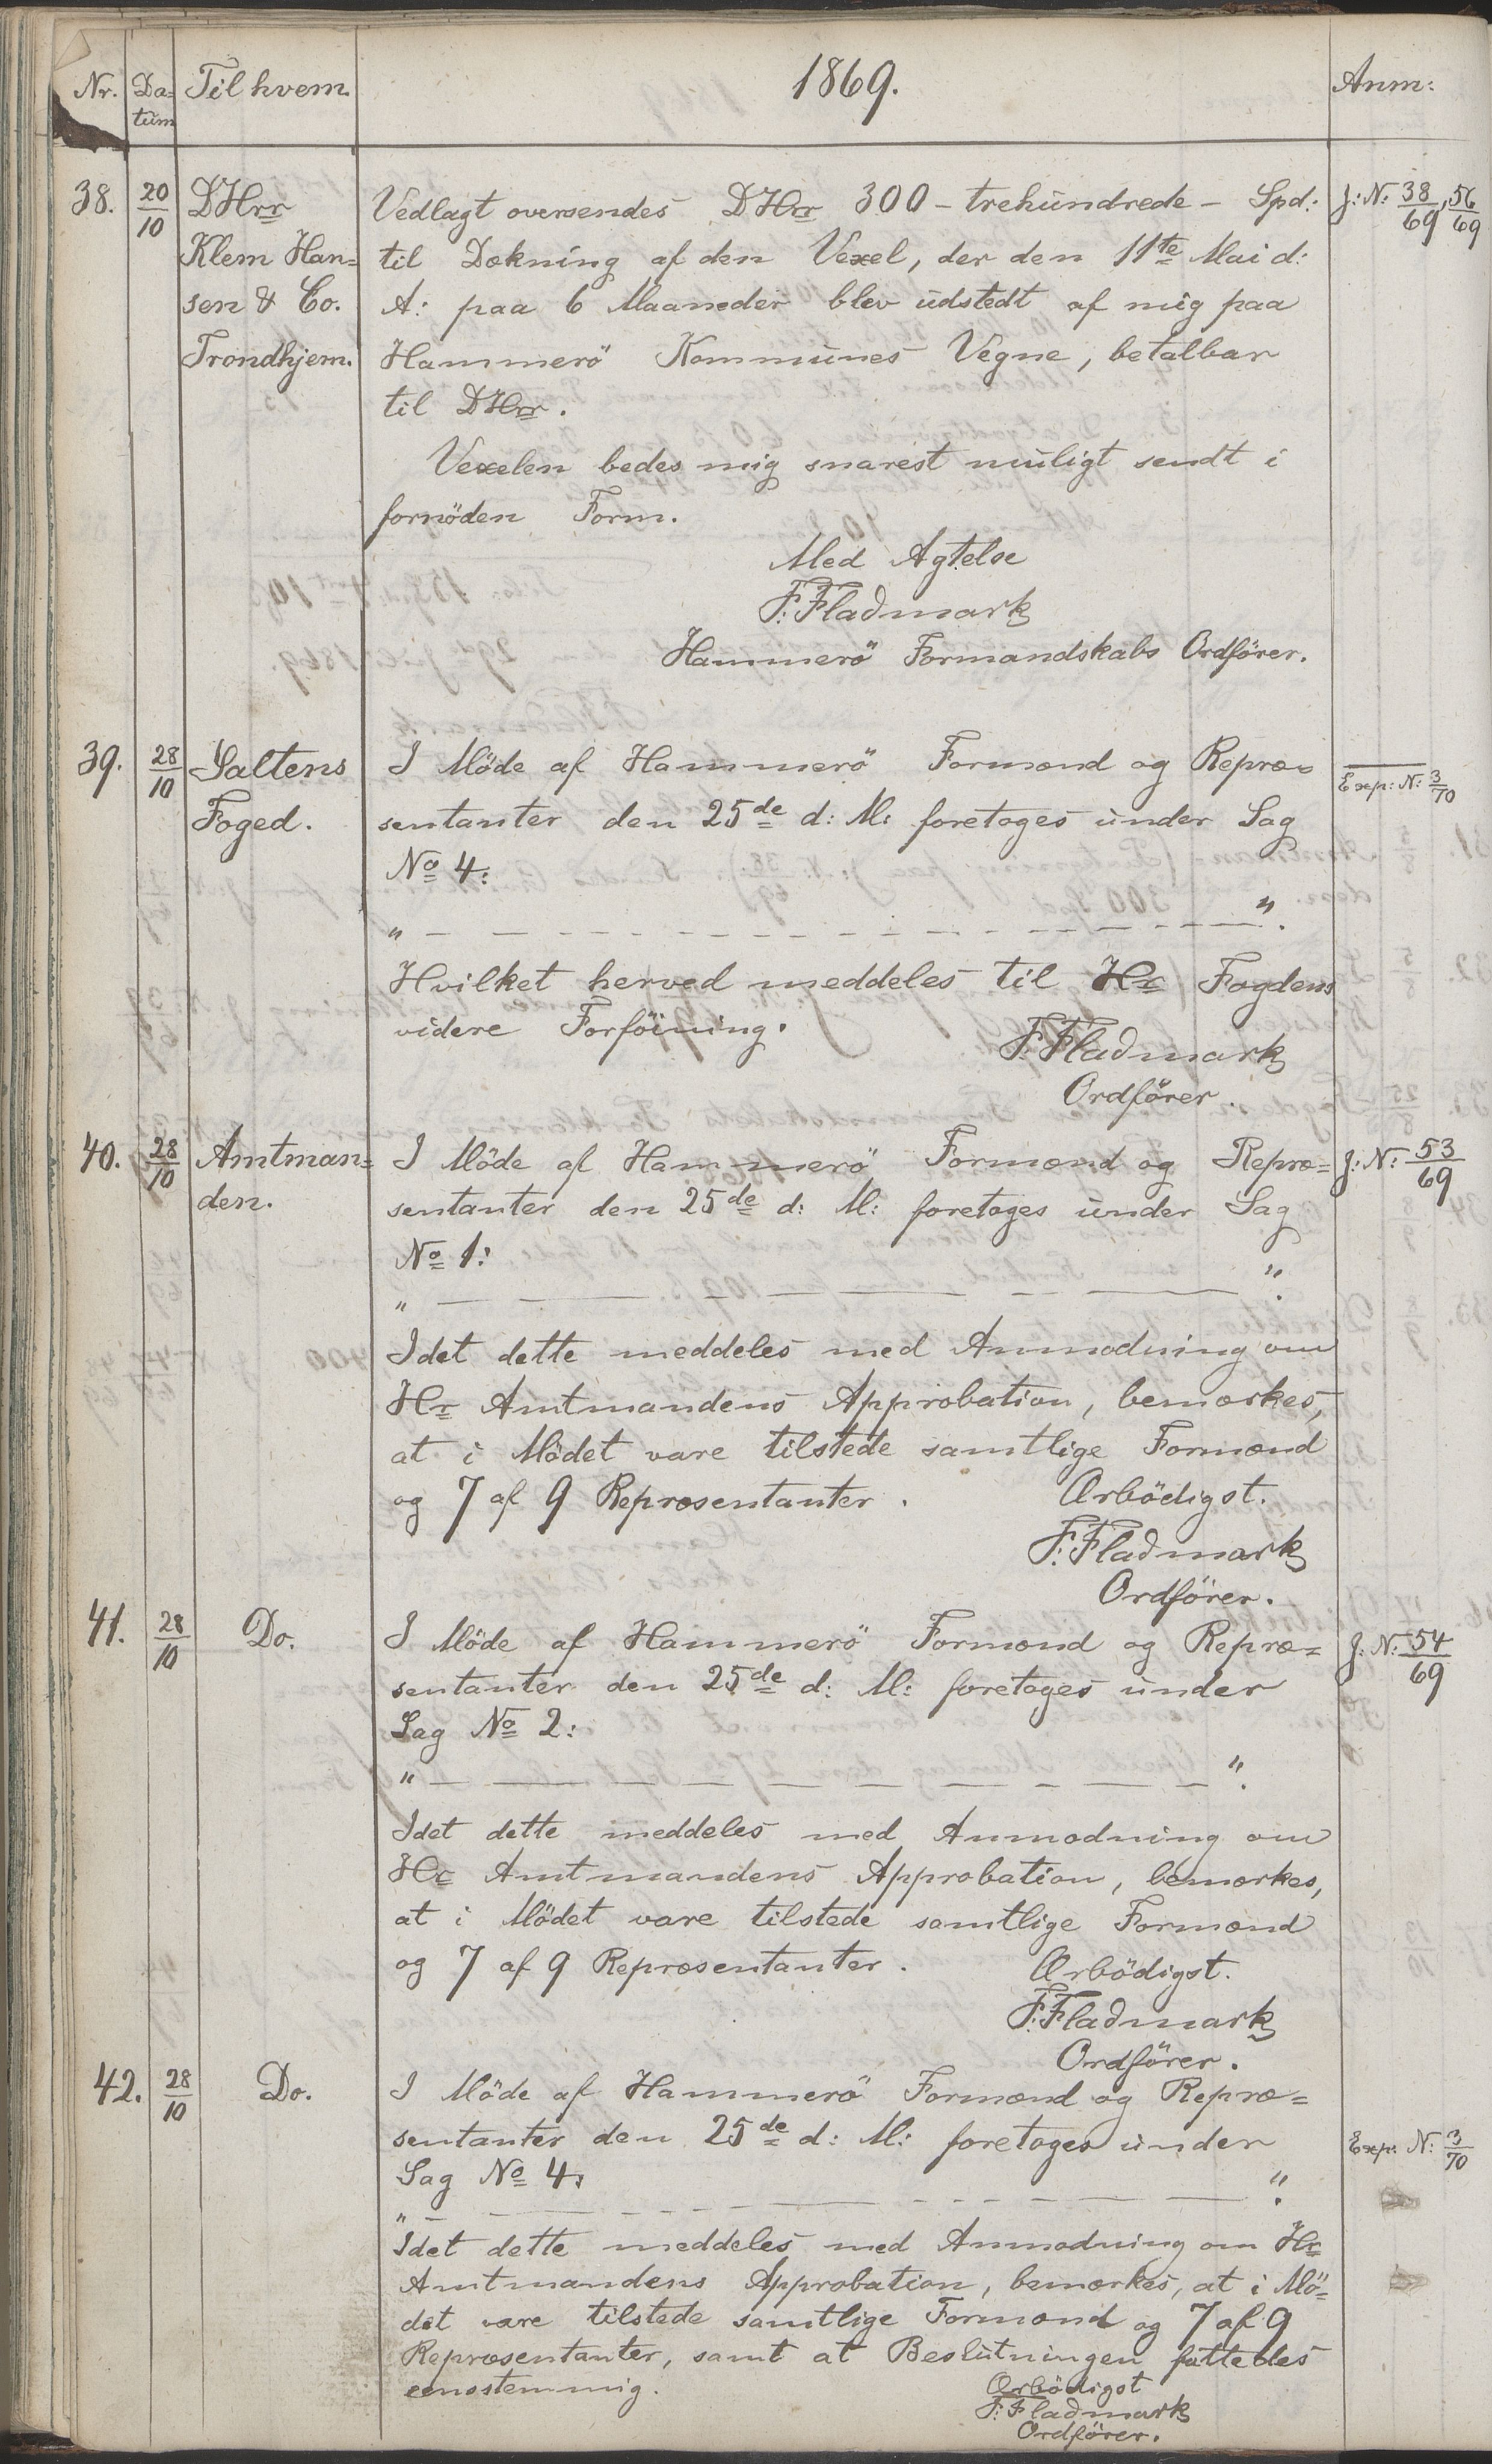 Nr. Da= Til hvem. 1869. Anm:
tum
38. 20/10 DHrr Vedlagt oversendes DHrr 300 - trehundrede - Spd: J: N: 38/69, 56/69
Klem Han= til Dækning af den Vexel, der den 11te Mai d:
sen & Co. A: paa 6 Maaneder blev udstedt af mig paa
Trondhjem. Hammerö Kommunes Vegne, betalbar
til DHrr.
Vexelen bedes mig snarest muligt sendt i
fornöden Form.
Med Agtelse
F. Fladmark
Hammerö Formandskabs Ordförer.
39. 28/10 Saltens I Möde af Hammerö Formænd og Repræ= Exp: N: 3/70
Foged. sentanter den 25de d: M: foretoges under Sag
No 4:
" — — — — — — — — — ".
Hvilket herved meddeles til Hr Fogdens
videre Forföining.
F. Fladmark
Ordförer.
40. 28/10 Amtman= I Möde af Hammerö Formænd og Repræ= J: N: 53/69
den. sentanter den 25de d: M: foretoges under Sag
No 1:
" — — — — — — — — — ".
Idet dette meddeles med Anmodning om
Hr Amtmandens Approbation, bemærkes,
at i Mödet vare tilstede samtlige Formænd
og 7 af 9 Repræsentanter. Ærbödigst.
F. Fladmark
Ordförer.
41. 28/10 Do. I Möde af Hammerö Formænd og Repræ= J: N: 54/69
sentanter den 25de d: M: foretoges under
Sag No 2:
" — — — — — — — — — ".
Idet dette meddeles med Anmodning om
Hr Amtmandens Approbation, bemærkes,
at i Mödet vare tilstede samtlige Formænd
og 7 af 9 Repræsentanter. Ærbödigst.
F. Fladmark
Ordförer.
42. 28/10 Do. I Möde af Hammerö Formænd og Repræ=
sentanter den 25de d: M: foretoges under Exp: N: 3/70
Sag No 4.
" — — — — — — — — — ".
Idet dette meddeles med Anmodning om Hr
Amtmandens Approbation, bemærkes, at i Mö=
det vare tilstede samtlige Formænd og 7 af 9
Repræsentanter, samt at Beslutningen fattedes
eenstemmig. Ærbödigst
F. Fladmark
Ordförer.